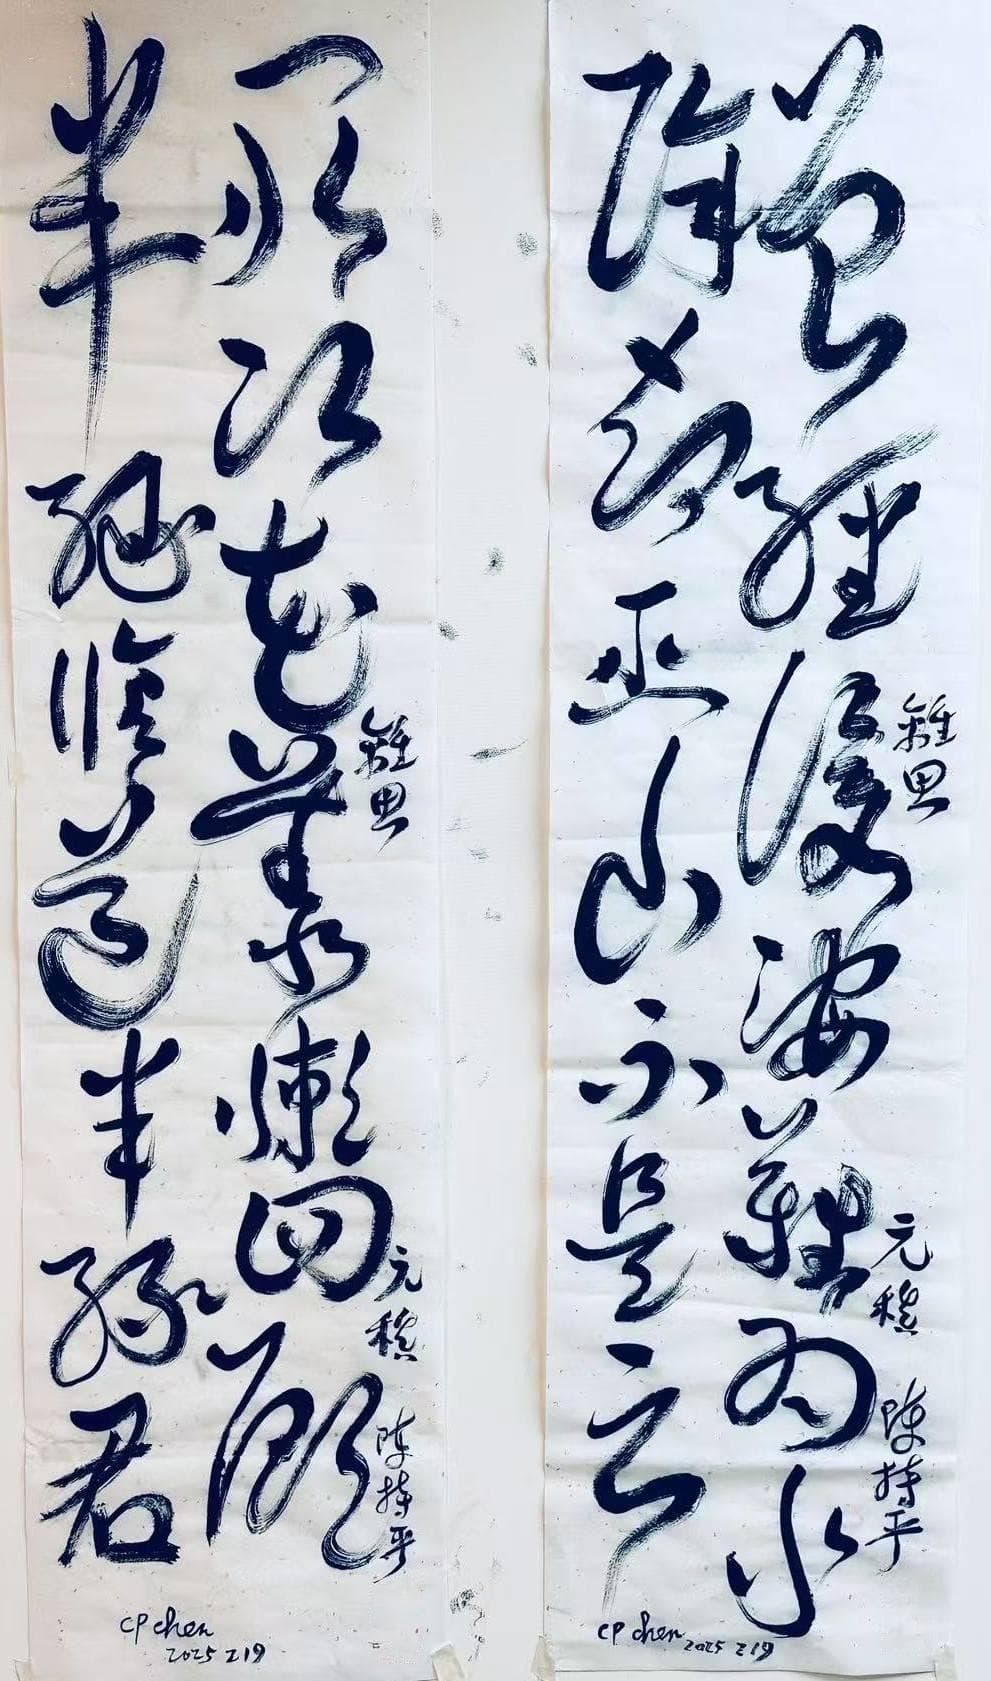 曾經滄海難為水
離思 元稹 陳持平
除却巫山不是云
CP chen
2025 2 19
取次花叢懶回顧
離思 元稹 陳持平
半緣修道半緣君
CP chen
2025 2 19